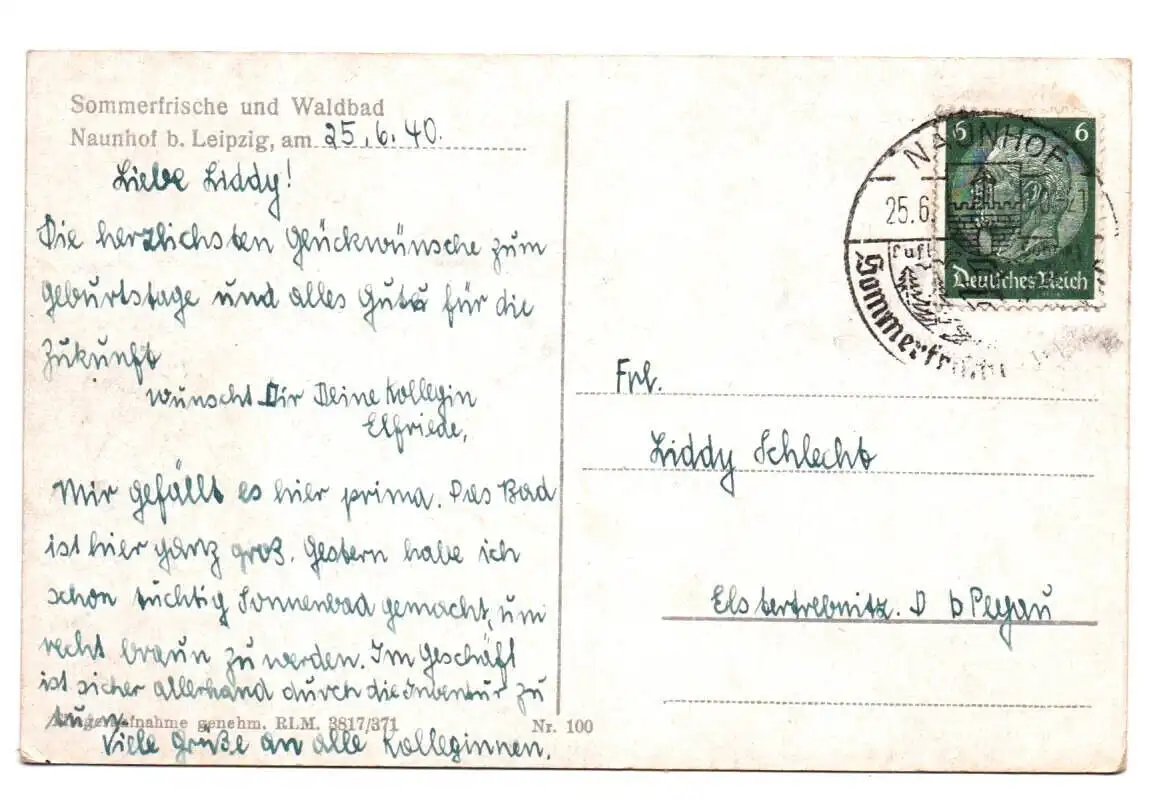 Sommerfrische und Waldbad
Naunhof b. Leipzig, am 25.6.40.
Liebe Liddy!
Die herzlichsten Glückwünsche zum
Geburtstage und alles Gute für die
Zukunft
wünscht Dir Deine Kollegin
Elfriede,
Mir gefällt es hier prima. Das Bad
ist hier ganz groß. Gestern habe ich
schon tüchtig Sonnenbad gemacht, um
recht braun zu werden. Im Geschäft
ist sicher allerhand durch die Inventur zu
tun.
Viele Grüße an alle Kolleginnen.
genehm. RLM. 3817/371
Nr. 100
6 6
Deutsches Reich
NAUNHOF
25.6.
Luft
Frl.
Liddy Schlecht
Elstertrebnitz. b Pegau